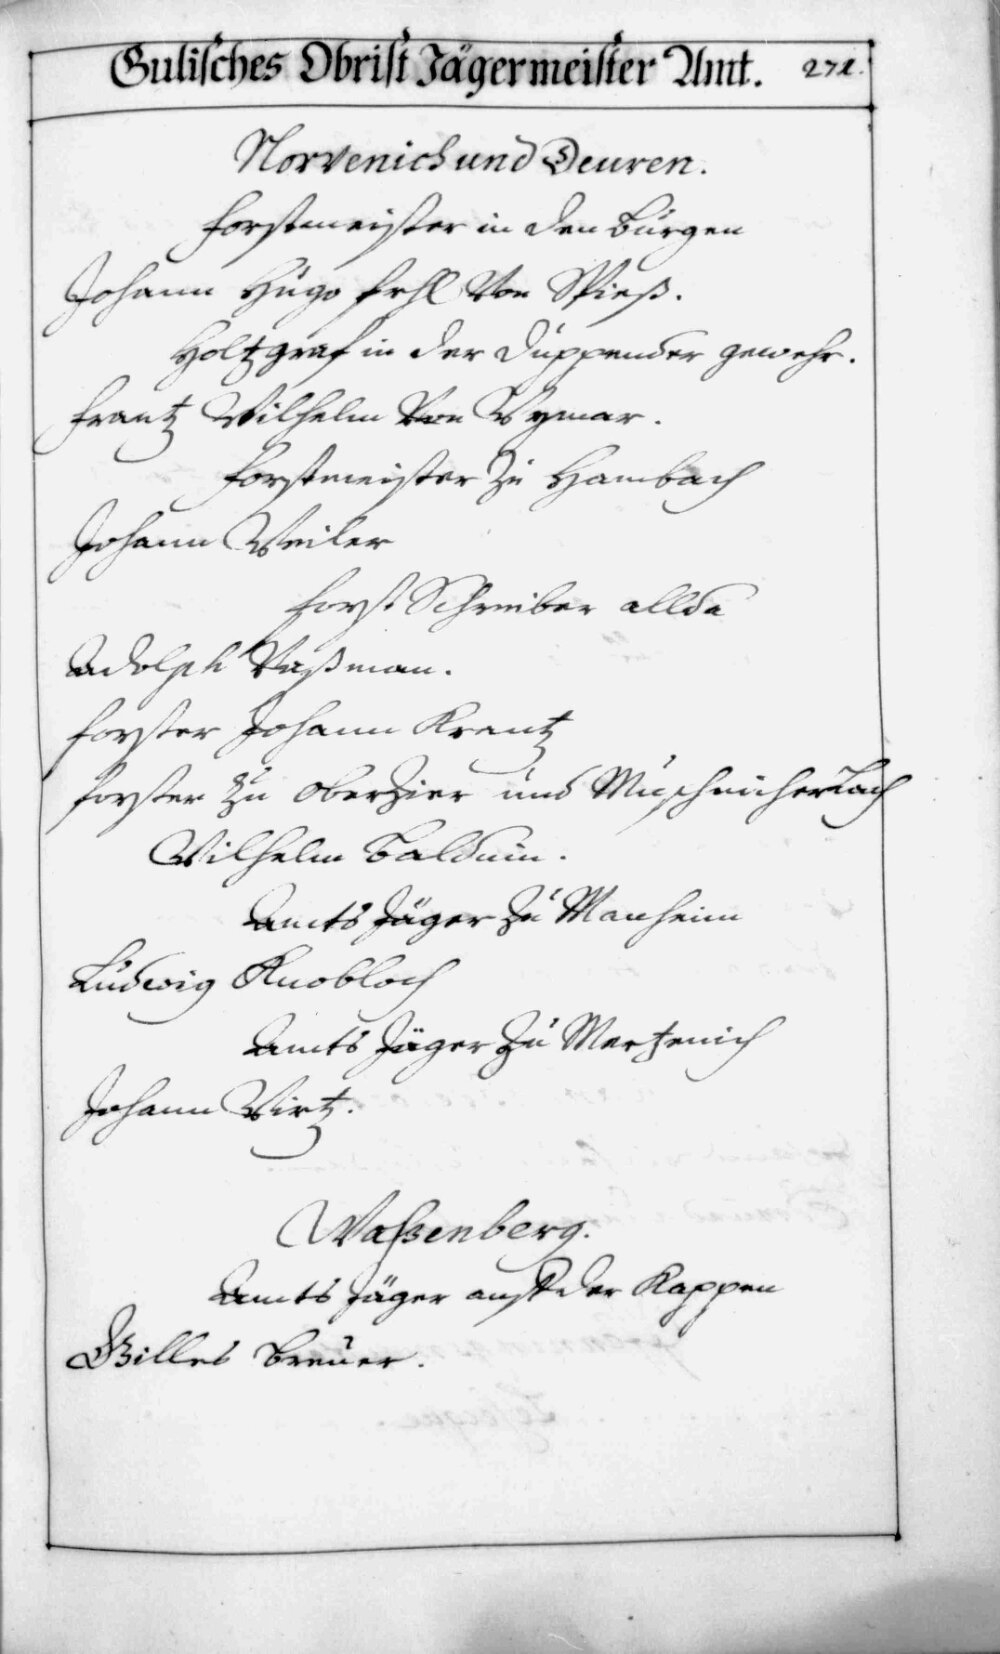 Gulisches Obrist Jägermeister Amt. 271.
Norvenich und Deuren.
Forstmeister in den Bürgen
Johann Hugo frhl Von Spieß.
Holtzgraf in der Düppender gewehr.
Frantz Wilhelm Von Wymar.
Forstmeister Zu Hambach
Johann Weiler
Forst Schreiber allda
Adolph Vaßman.
Forster Johann Krantz
Forster Zu Oberzier und
Wilhelm Balduin.
Amts Jäger Zu Manheim
Ludwig Knobloch
Amts Jäger Zu Mertzenich
Johann Wirtz.
Waßenberg.
Amts Jäger auff der Kappen
Gilles Breuer.